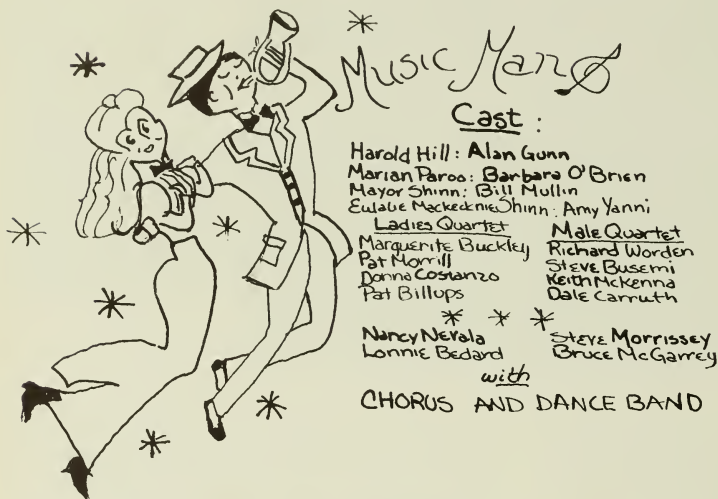 Music Man
Cast:
Harold Hill: Alan Gunn
Marian Paroo: Barbara O'Brien
Mayor Shinn: Bill Mullin
Eulalie Mackecknie Shinn: Amy Yanni
Ladies Quartet
Marguerite Buckley
Pat Morrill
Donna Costanzo
Pat Billups
Male Quartet
Richard Worden
Steve Busemi
Keith McKenna
Dale Carruth
Nancy Nevala
Lonnie Bedard
Steve Morrissey
Bruce McGarrey
with
CHORUS AND DANCE BAND